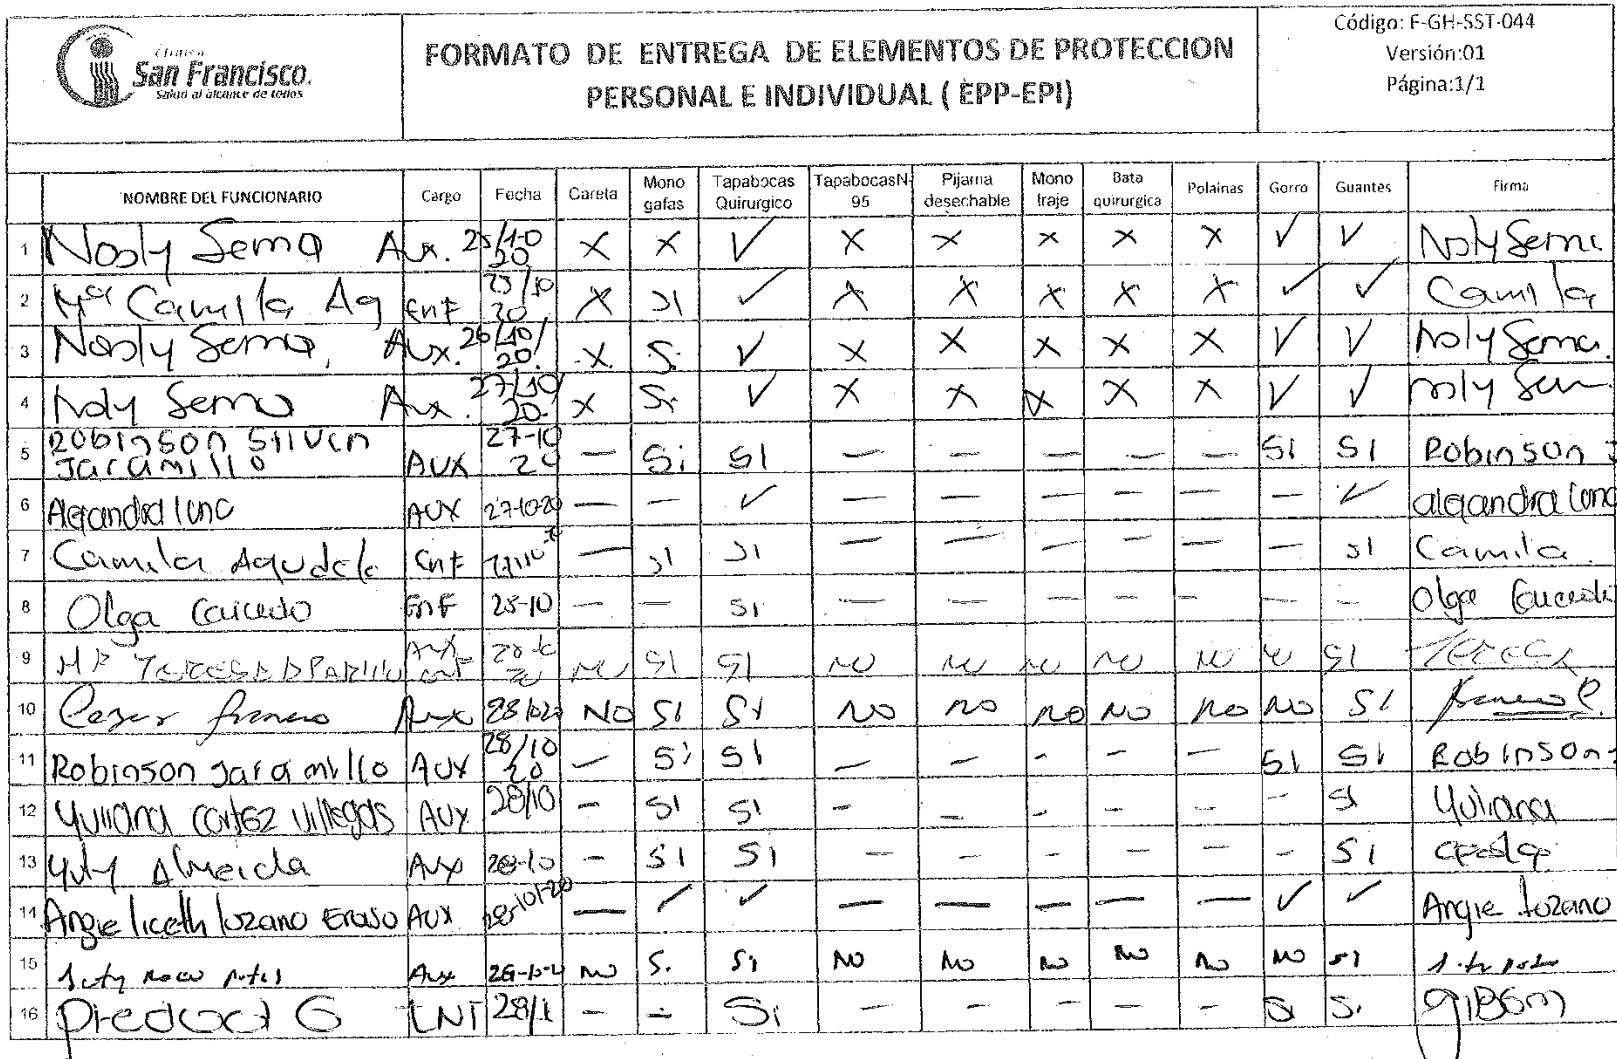 Clínica
San Francisco.
Salud al alcance de todos
FORMATO DE ENTREGA DE ELEMENTOS DE PROTECCION
PERSONAL E INDIVIDUAL ( EPP-EPI)
Código: F-GH-SST-044
Versión:01
Página:1/1
NOMBRE DEL FUNCIONARIO Cargo Fecha Careta Mono gafas Tapabocas Quirurgico TapabocasN-95 Pijama desechable Mono traje Bata quirurgica Polainas Gorro Guantes Firma
1 Nosly Serna Aux. 25/10 20 X X ✓ X X X X X ✓ ✓ Nosly Serna
2 Mª Camila Ag Enf 25/10 20 X SI ✓ X X X X X ✓ ✓ Camila
3 Nosly Serna, Aux. 26/10/20. X Si ✓ X X X X X ✓ ✓ Nosly Serna.
4 Noly Serna Aux. 27/10/20. X Si ✓ X X X X X ✓ ✓ noly Ser
5 Robinson Stiven Jaramillo AUX 27-10 20 — Si SI — — — — — SI SI Robinson J
6 Alejandra luna AUX 27-10-20 — — ✓ — — — — — — ✓ alejandra luna
7 Camila Agudelo Enf 27/10 20 — SI SI — — — — — — SI Camila
8 Olga Caicedo Enf 25-10 — — SI — — — — — — — Olga Caicedo
9 Mª TERESA Aux enf 28-10 20 NO SI SI NO NO NO NO NO NO SI Teresa
10 Cesar franco Aux 28/1020 NO SI SI NO NO NO NO NO NO SI franco C.
11 Robinson Jaramillo AUX 28/10 20 — Si SI — — - - — SI SI Robinson
12 Yuliana Cortez Villegas AUX 28/10 — SI SI - - - - - - SI Yuliana
13 Yuly Almeida Aux 28-10 - SI SI — — - - - - SI
14 Angie liceth lozano Eraso AUX 28-10-20 — ✓ ✓ — — — — — ✓ ✓ Angie lozano
15 Aux NO Si Si NO NO NO NO NO NO SI
16 28/1 - - Si — — - - - Si Si